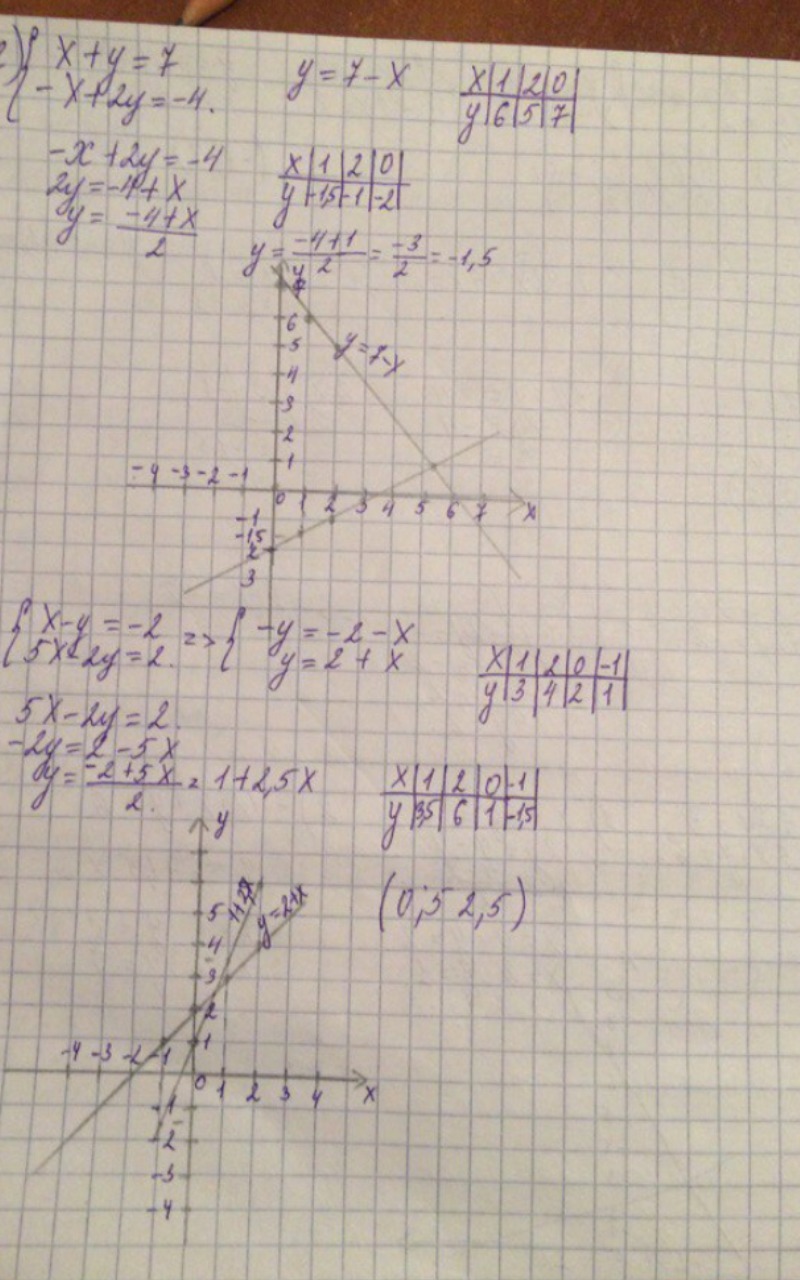 2) { x+y=7
-x+2y=-4.
y=7-x
x|1|2|0|
y|6|5|7|
-x+2y=-4
2y=-4+x
y=\frac{-4+x}{2}
x|1|2|0|
y|-1,5|-1|-2|
y=\frac{-4+1}{2}=\frac{-3}{2}=-1,5
y
7
6
5
4
3
2
1
y=7-x
-4 -3 -2 -1
0 1 2 3 4 5 6 7 x
-1
-1,5
2
3
{ x-y=-2 => { -y=-2-x
5x-2y=2. y=2+x
x|1|2|0|-1|
y|3|4|2|1|
5x-2y=2.
-2y=2-5x
y=\frac{-2+5x}{2.}=1+2,5x
x|1|2|0|-1|
y|3,5|6|1|-1,5|
(0,5 2,5)
y
y=2+x
5
4
3
2
1
-4 -3 -2 -1
0 1 2 3 4 x
-1
2
-3
-4